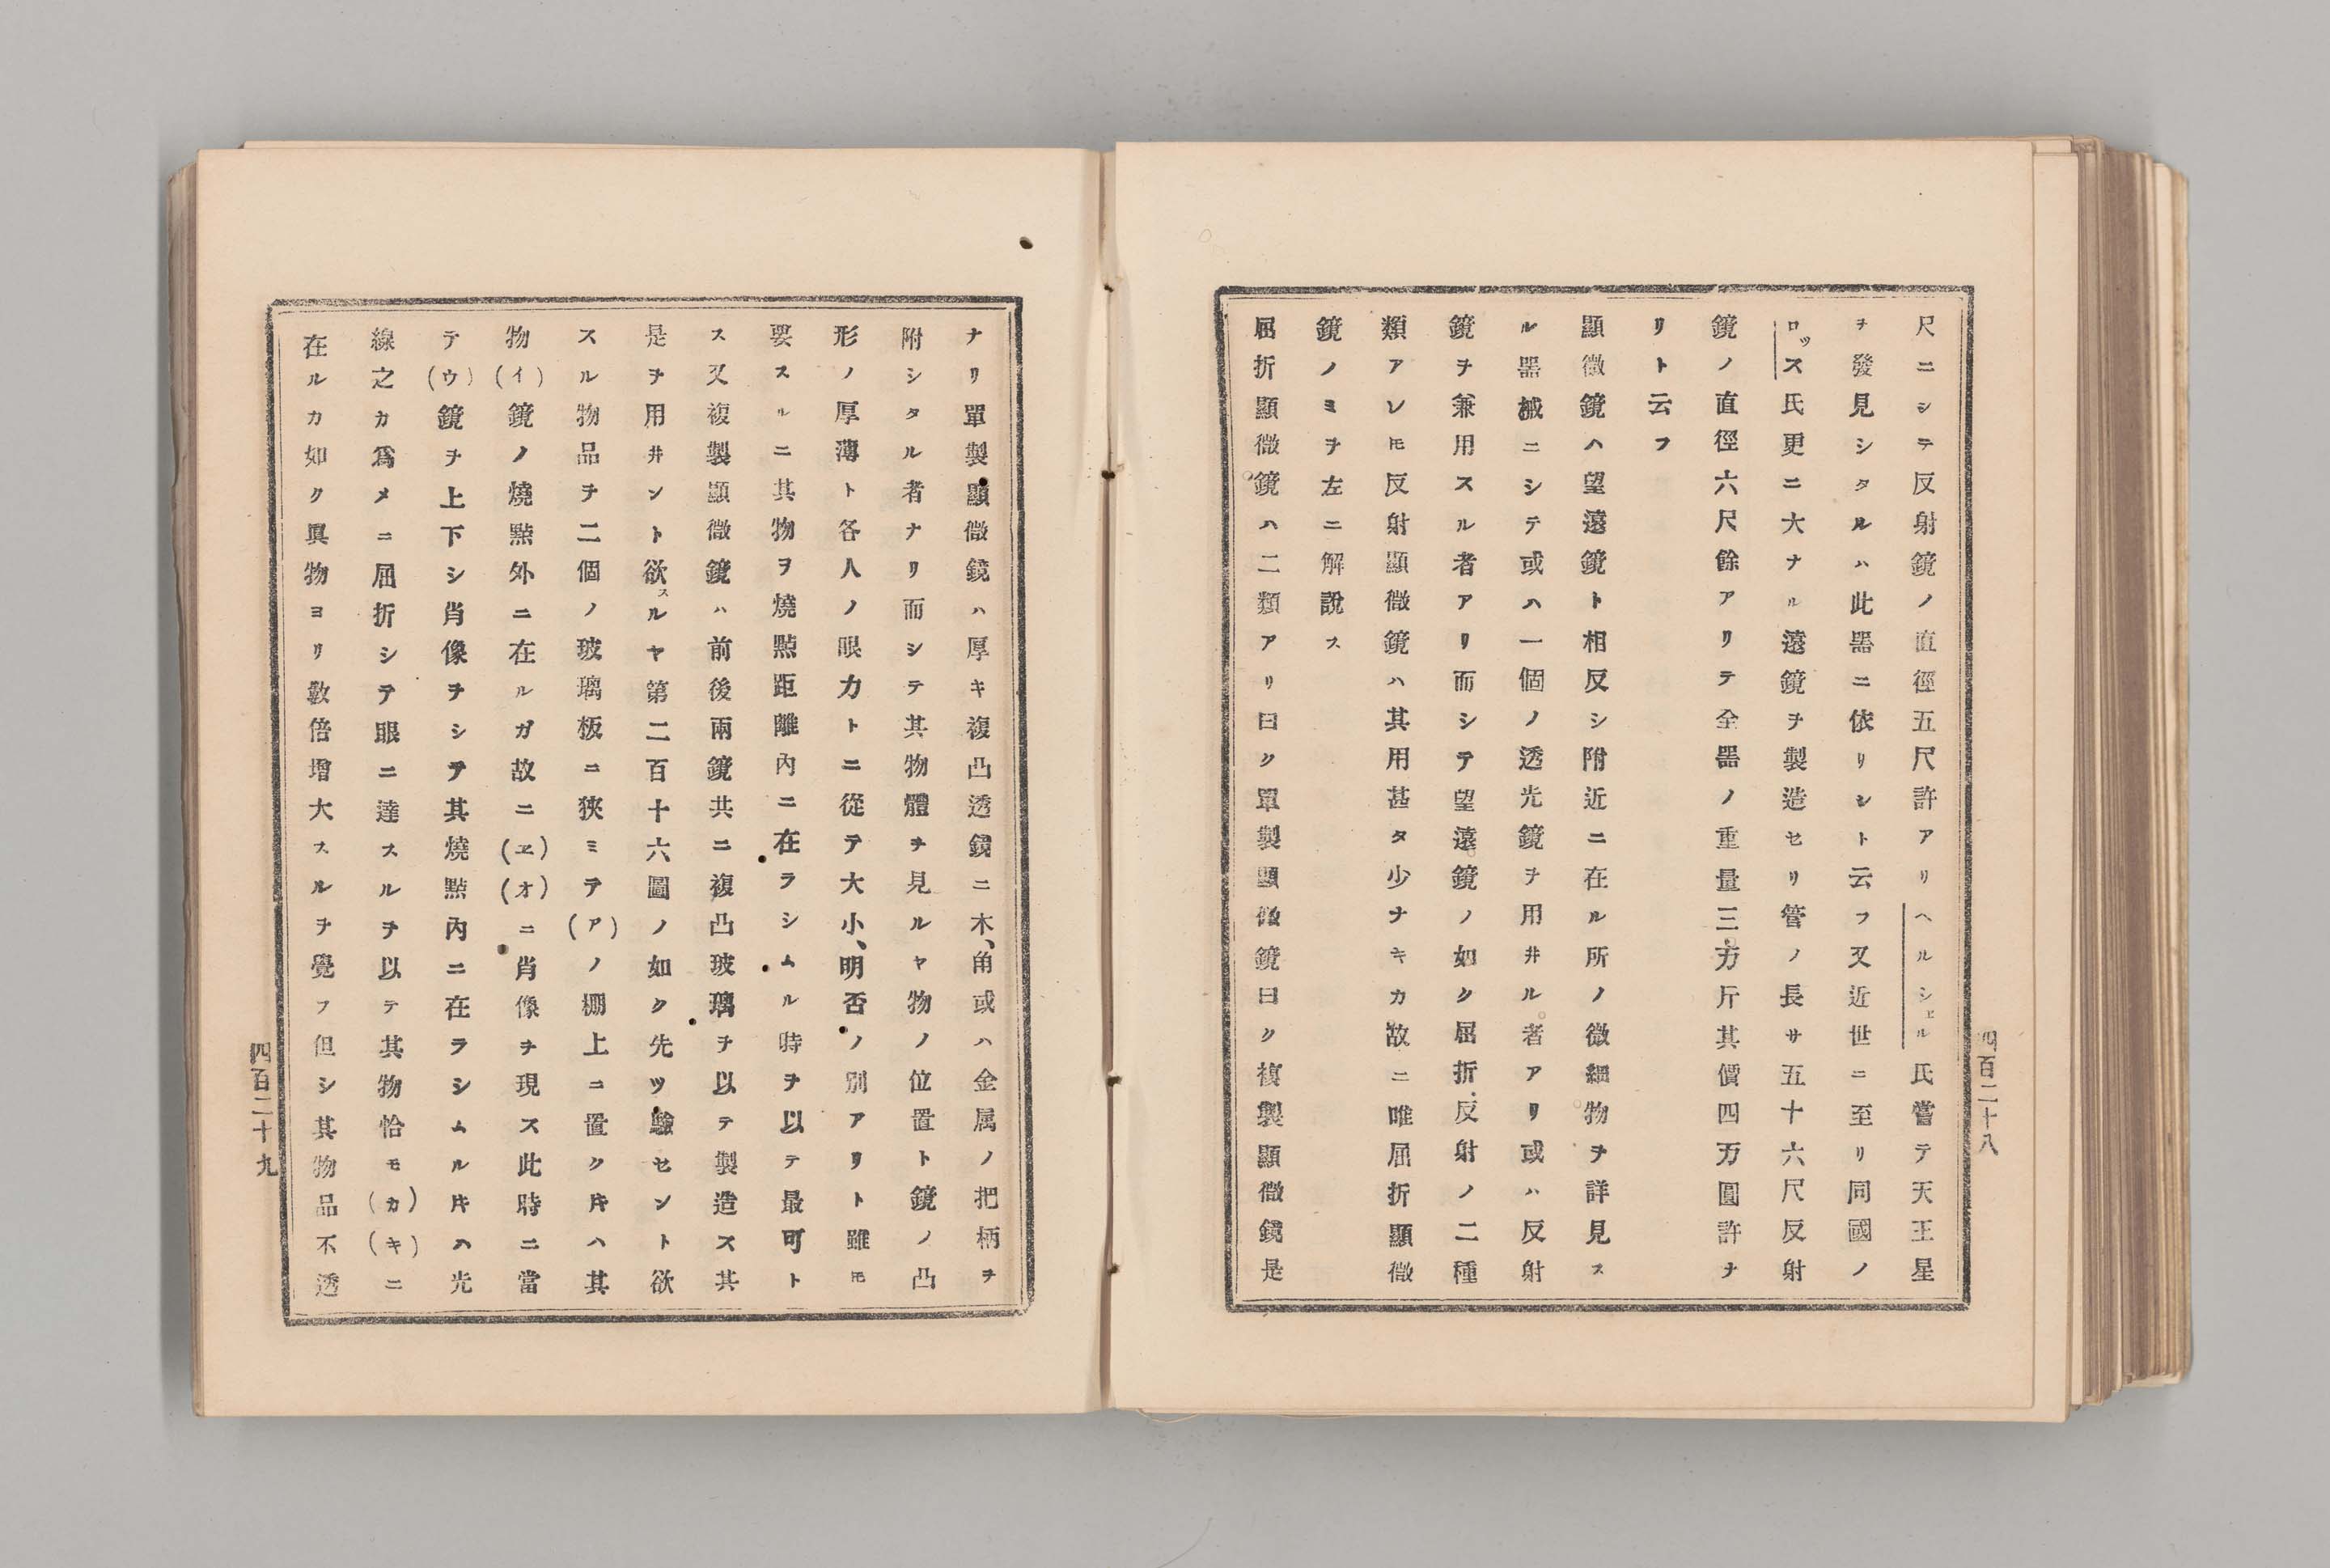 尺ニシテ反射鏡ノ直徑五尺許アリヘルシェル氏嘗テ天王星
ヲ發見シタルハ此器ニ依リシト云フ又近世ニ至リ同國ノ
ロッス氏更ニ大ナル遠鏡ヲ製造セリ管ノ長サ五十六尺反射
鏡ノ直徑六尺餘アリテ全器ノ重量三万斤其價四万圓許ナ
リト云フ
顯微鏡ハ望遠鏡ト相反シ附近ニ在ル所ノ微細物ヲ詳見ス
ル器械ニシテ或ハ一個ノ透光鏡ヲ用井ル者アリ或ハ反射
鏡ヲ兼用スル者アリ而シテ望遠鏡ノ如ク屈折反射ノ二種
類アレ𪜈反射顯微鏡ハ其用甚タ少ナキカ故ニ唯屈折顯微
鏡ノミヲ左ニ解說ス
屈折顯微鏡ハ二類アリ曰ク單製顯微鏡曰ク複製顯微鏡是
四百二十八
ナリ單製顯微鏡ハ厚キ複凸透鏡ニ木、角或ハ金属ノ把柄ヲ
附シタル者ナリ而シテ其物體ヲ見ルヤ物ノ位置ト鏡ノ凸
形ノ厚薄ト各人ノ眼力トニ從テ大小、明否ノ別アリト雖𪜈
要スルニ其物ヲ燒點距離內ニ在ラシムル時ヲ以テ最可ト
ス又複製顯微鏡ハ前後兩鏡共ニ複凸玻璃ヲ以テ製造ス其
是ヲ用井ント欲スルヤ第二百十六圖ノ如ク先ツ驗セント欲
スル物品ヲ二個ノ玻璃板ニ狹ミテ(ア)ノ棚上ニ置ク𪜈ハ其
物(イ)鏡ノ燒點外ニ在ルガ故ニ(ヱ)(オ)ニ肖像ヲ現ス此時ニ當
テ(ウ)鏡ヲ上下シ肖像ヲシテ其燒點內ニ在ラシムル𪜈ハ光
線之カ爲メニ屈折シテ眼ニ達スルヲ以テ其物恰モ(カ)(キ)ニ
在ルカ如ク眞物ヨリ數倍增大スルヲ覺フ但シ其物品不透
四百二十九